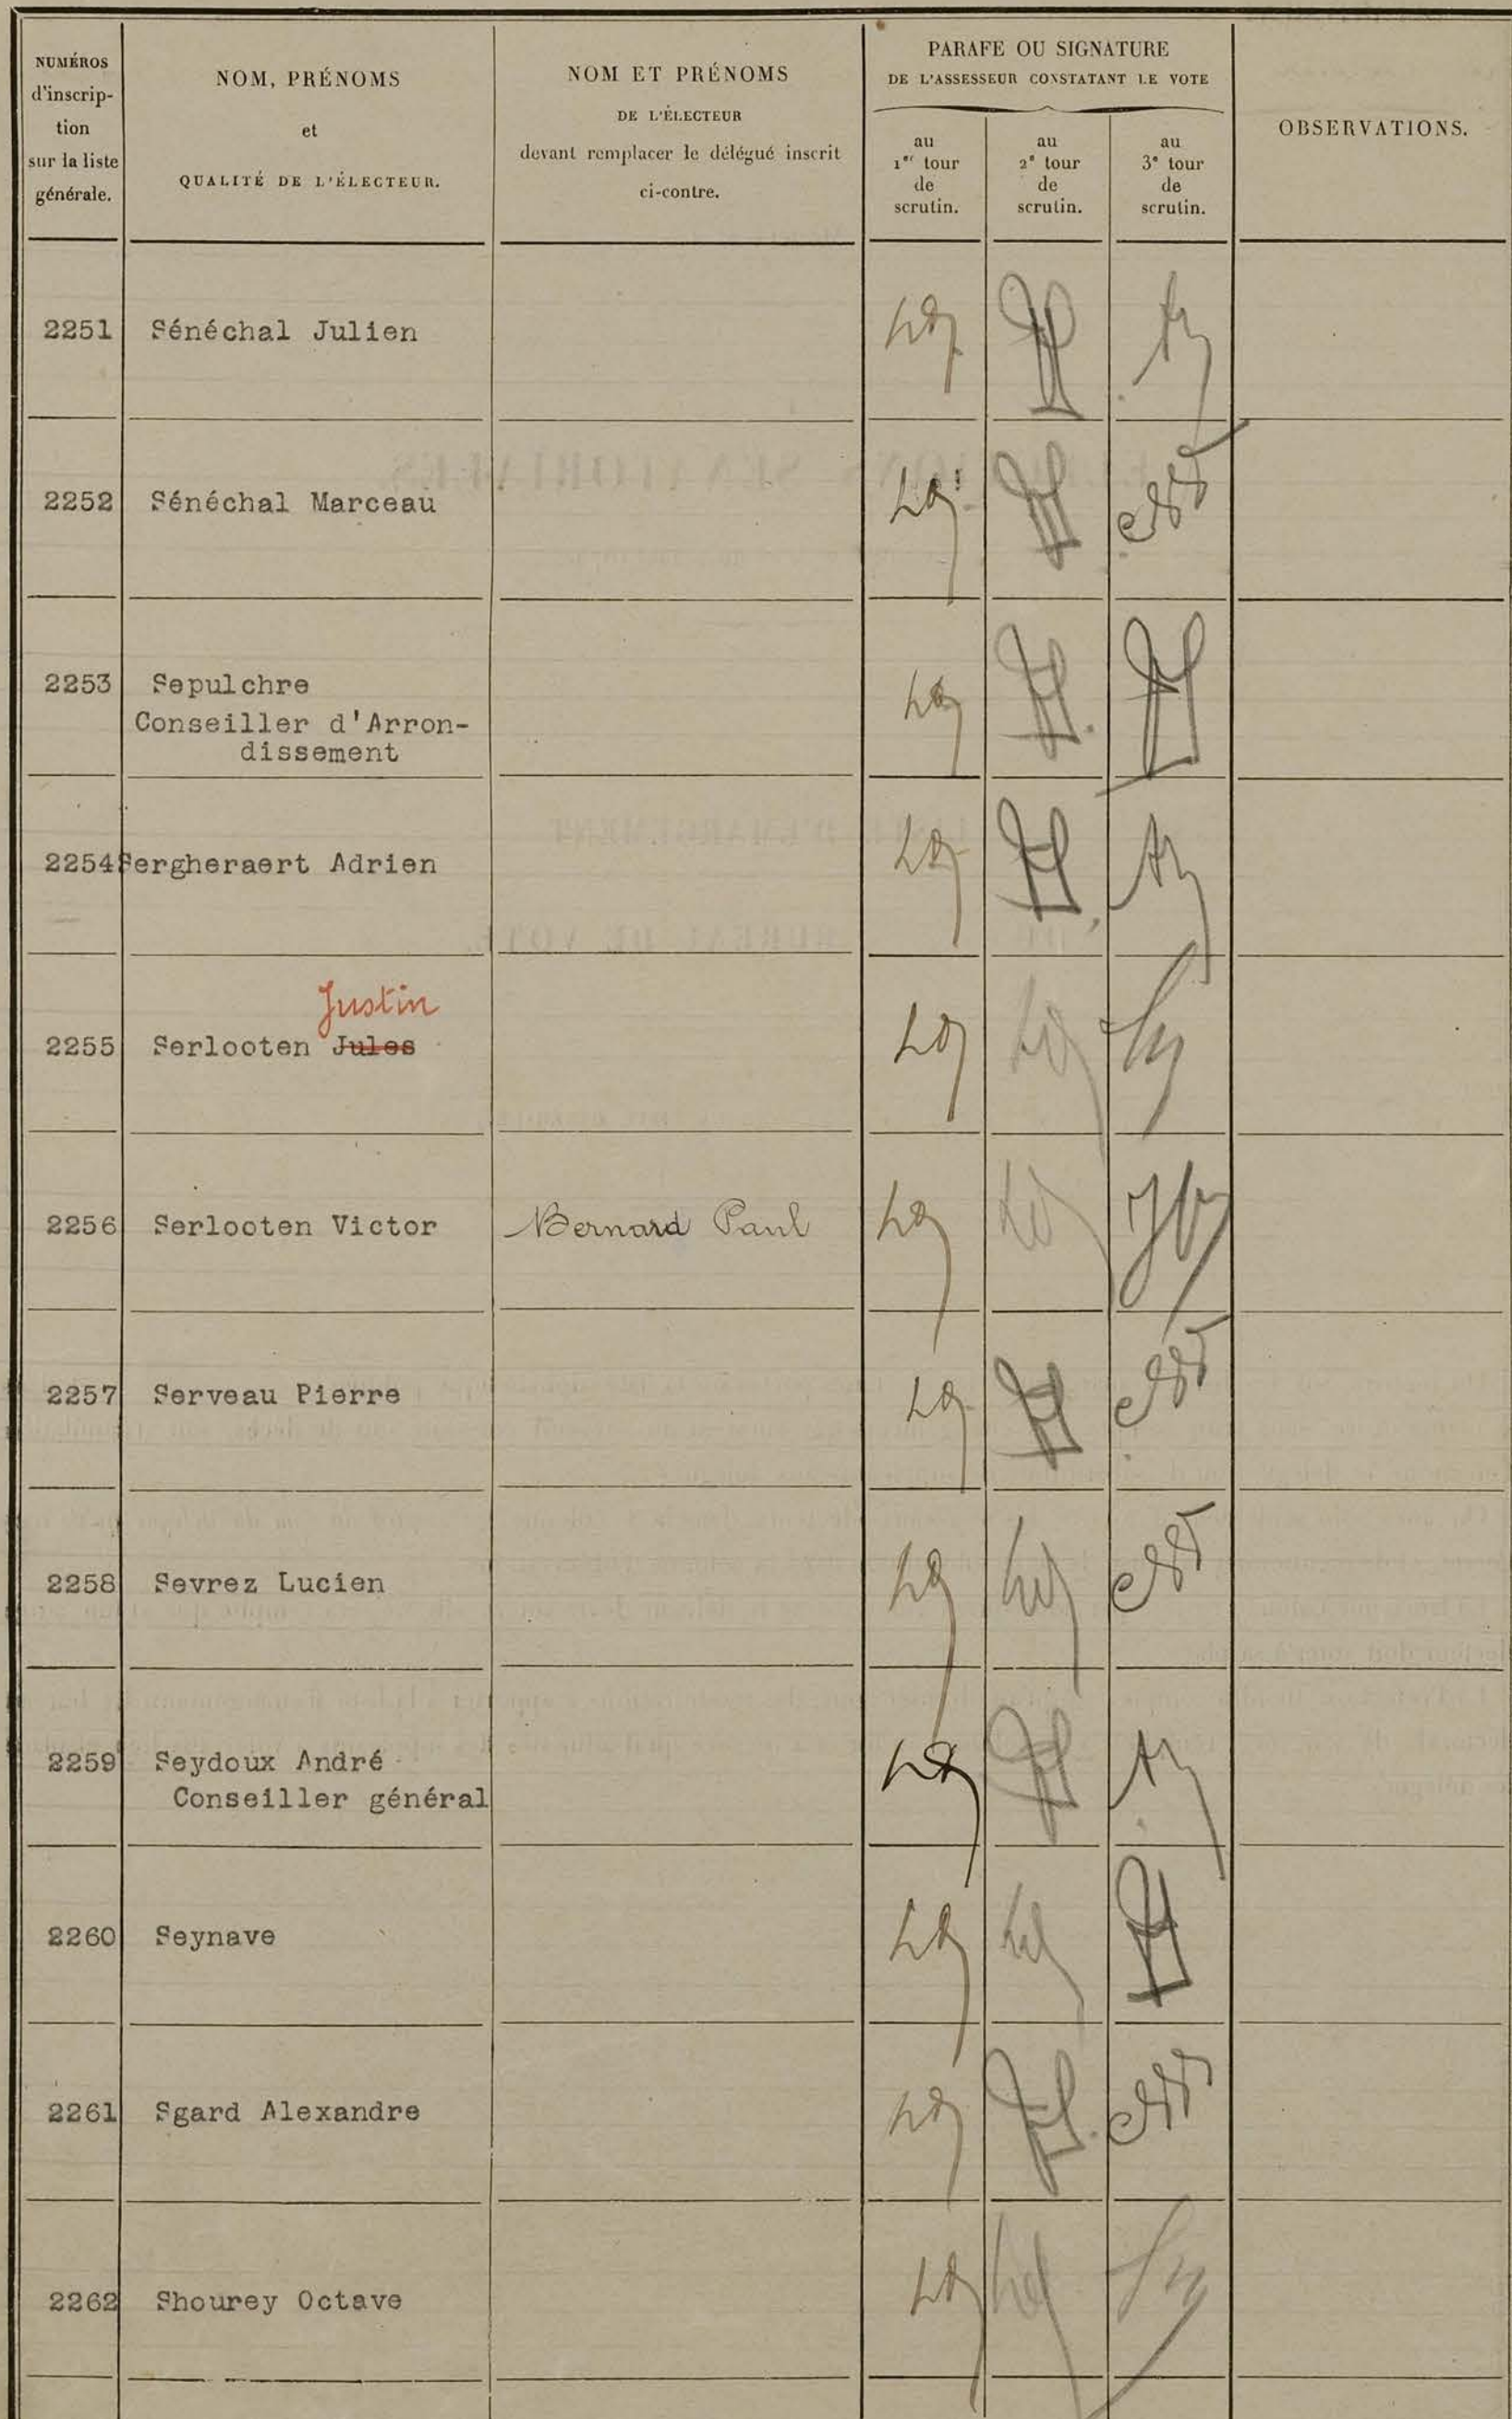 NUMÉROS
d'inscrip-
tion
sur la liste
générale.
NOM, PRÉNOMS
et
QUALITÉ DE L'ÉLECTEUR.
NOM ET PRÉNOMS
DE L'ÉLECTEUR
devant remplacer le délégué inscrit
ci-contre.
PARAFE OU SIGNATURE
DE L'ASSESSEUR CONSTATANT LE VOTE
au
1er tour
de
scrutin.
au
2e tour
de
scrutin.
au
3e tour
de
scrutin.
OBSERVATIONS.
2251 Sénéchal Julien
2252 Sénéchal Marceau
2253 Sepulchre
Conseiller d'Arron-
dissement
2254 Sergheraert Adrien
Justin
2255 Serlooten Jules
2256 Serlooten Victor Bernard Paul
2257 Serveau Pierre
2258 Sevrez Lucien
2259 Seydoux André
Conseiller général
2260 Seynave
2261 Sgard Alexandre
2262 Shourey Octave